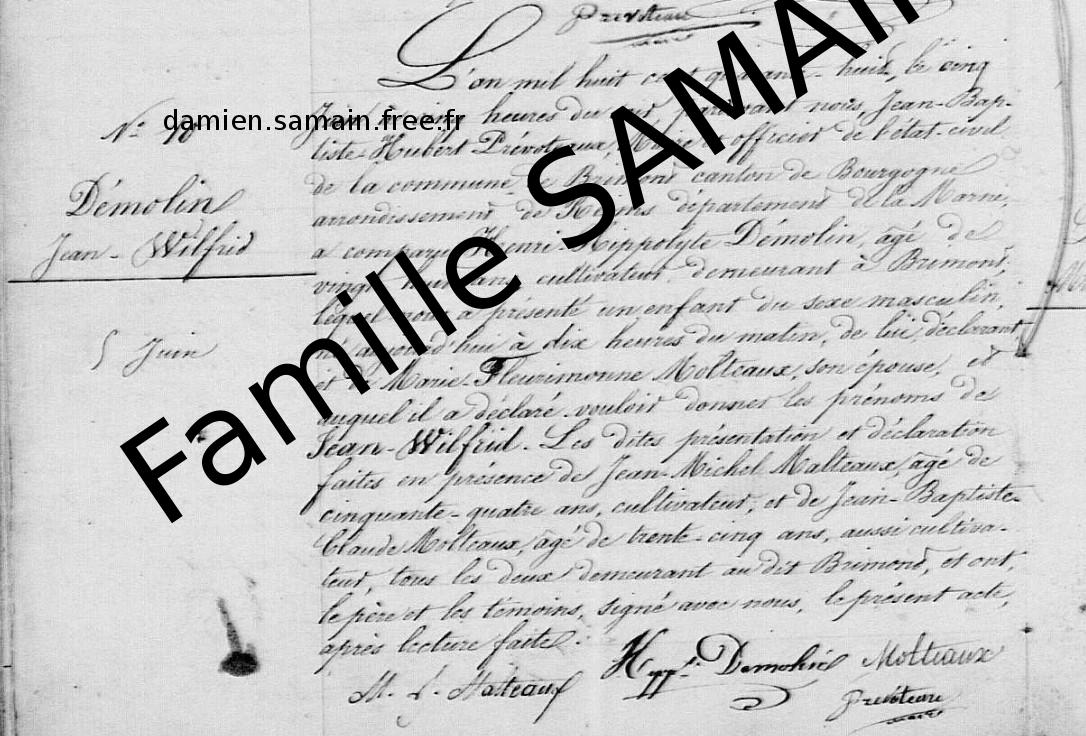 Prévoteau
maire
L'an mil huit cent quarante-huit, le cinq
Juin heures du soir, pardevant nous, Jean-Bap-
tiste Hubert Prévoteaux, Maire officier de l'état-civil
de la commune de Brimont canton de Bourgogne
arrondissement de Reims département de la Marne,
a comparu Henri-Hippolyte Démolin âgé de
vingt huit ans, cultivateur demeurant à Brimont;
lequel nous a présenté un enfant du sexe masculin,
né aujourd'hui à dix heures du matin, de lui, déclarant
et de Marie-Fleurimonne Molteaux, son épouse, et
auquel il a déclaré vouloir donner les prénoms de
Jean-Wilfrid. Les dites présentation et déclaration
faites en présence de Jean-Michel Malteaux, âgé de
cinquante-quatre ans, cultivateur, et de Jean-Baptiste-
Claude Molteaux, âgé de trente-cinq ans, aussi cultiva-
teur, tous les deux demeurant au dit Brimont, et ont,
le père et les témoins, signé avec nous, le présent acte,
après lecture faite.
M. J. Malteaux Hyp. Demolin Molteaux
Prévoteau
maire
N°
Démolin
Jean-Wilfrid
5 Juin
damien.samain.free.fr
Famille SAMAIN